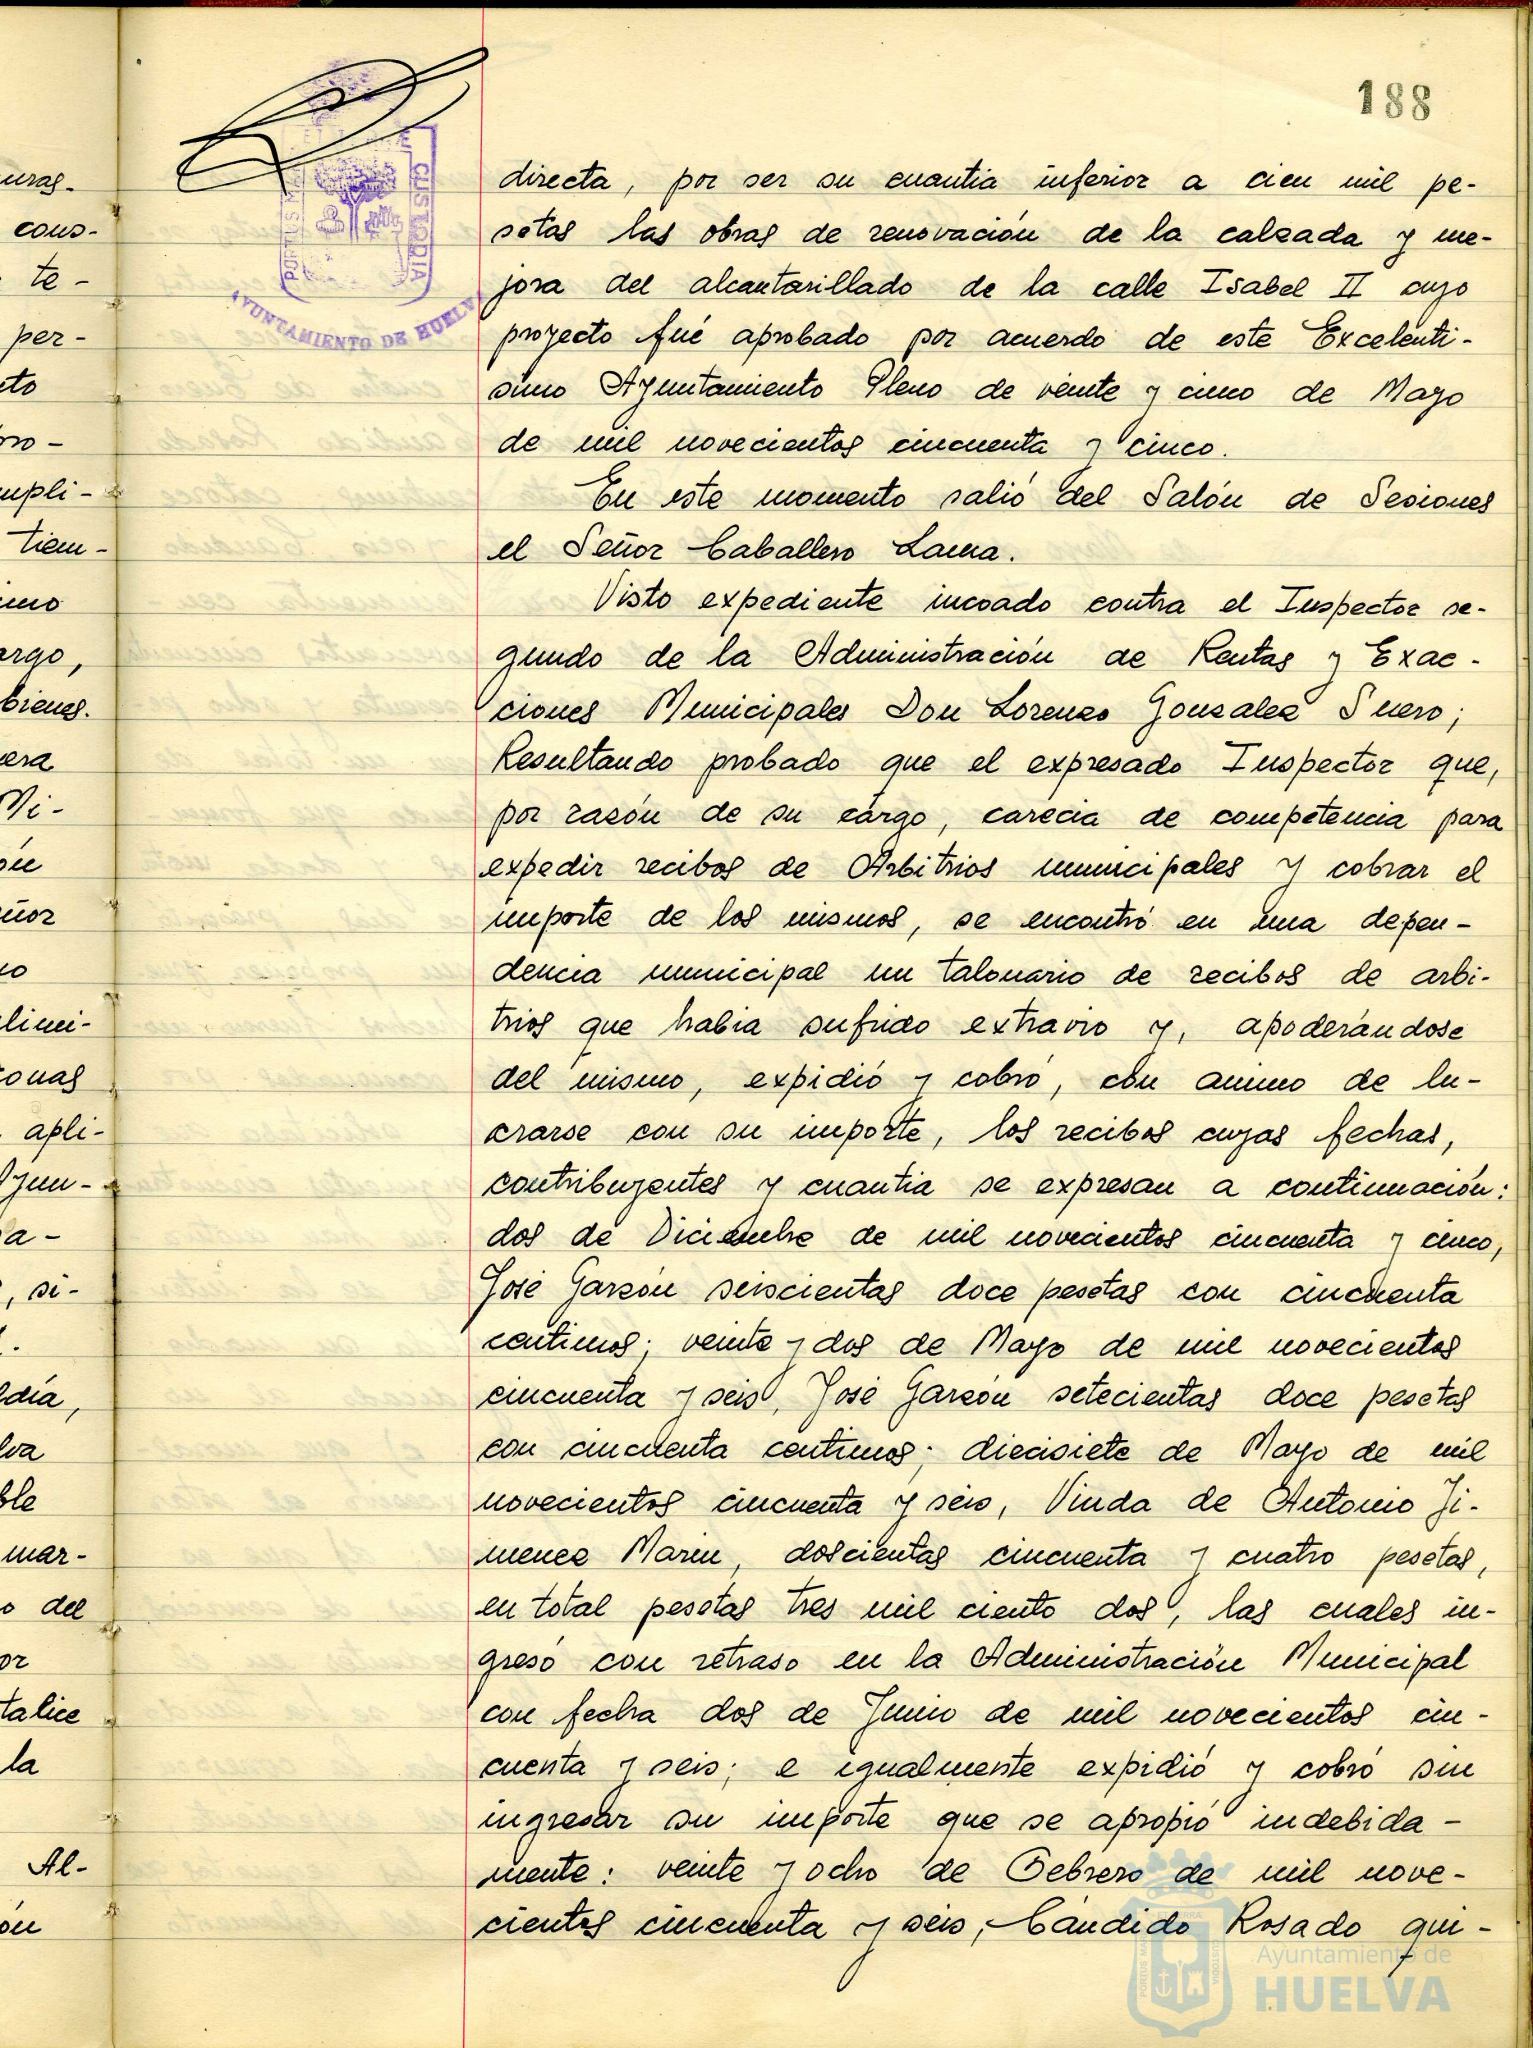 188
PORTUS MARIS ET TERRAE CUSTODIA
AYUNTAMIENTO DE HUELVA
directa, por ser su cuantia inferior a cien mil pe-
setas las obras de renovación de la calzada y me-
jora del alcantarillado de la calle Isabel II cuyo
proyecto fué aprobado por acuerdo de este Excelenti-
simo Ayuntamiento Pleno de veinte y cinco de Mayo
de mil novecientos cincuenta y cinco.
En este momento salió del Salón de Sesiones
el Señor Caballero Lama.
Visto expediente incoado contra el Inspector se-
gundo de la Administración de Rentas y Exac-
ciones Municipales Don Lorenzo Gonzalez Suero;
Resultando probado que el expresado Inspector que,
por razón de su cargo, carecia de competencia para
expedir recibos de Arbitrios municipales y cobrar el
importe de los mismos, se encontró en una depen-
dencia municipal un talonario de recibos de arbi-
trios que habia sufrido extravio y, apoderándose
del mismo, expidió y cobró, con animo de lu-
crarse con su importe, los recibos cuyas fechas,
contribuyentes y cuantia se expresan a continuación:
dos de Diciembre de mil novecientos cincuenta y cinco,
José Garzón seiscientas doce pesetas con cincuenta
centimos; veinte y dos de Mayo de mil novecientos
cincuenta y seis, José Garzón setecientas doce pesetas
con cincuenta centimos; diecisiete de Mayo de mil
novecientos cincuenta y seis, Viuda de Antonio Ji-
menez Marin, doscientas cincuenta y cuatro pesetas,
en total pesetas tres mil ciento dos, las cuales in-
gresó con retraso en la Administración Municipal
con fecha dos de Junio de mil novecientos cin-
cuenta y seis; e igualmente expidió y cobró sin
ingresar su importe que se apropió indebida-
mente: veinte y ocho de Febrero de mil nove-
cientos cincuenta y seis, Cándido Rosado qui-
Ayuntamiento de
HUELVA
uras-
cons-
te-
per-
eto
ro-
mpli-
tiem-
imo
argo,
bienes.
era
Mi-
ón
ñor
no
limi-
onas
apli-
Ayun-
a-
, si-
ldía,
lva
ble
mar-
o del
or
talice
la
Al-
ón